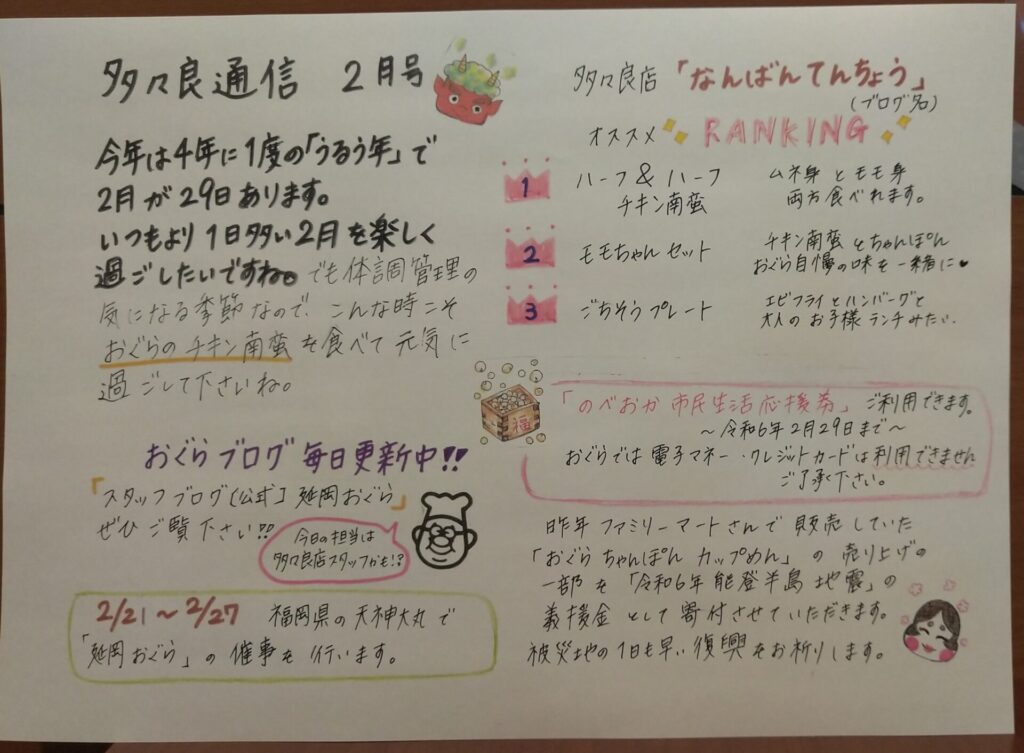 多々良通信 2月号
今年は4年に1度の「うるう年」で
2月が29日あります。
いつもより1日多い2月を楽しく
過ごしたいですね。でも体調管理の
気になる季節なので、こんな時こそ
おぐらのチキン南蛮を食べて元気に
過ごして下さいね。
おぐらブログ毎日更新中!!
「スタッフブログ(公式)延岡おぐら」
ぜひご覧下さい!!
今日の担当は
多々良店スタッフかも!?
2/21～2/27 福岡県の天神大丸で
「延岡おぐら」の催事を行います。
多々良店「なんばんてんちょう」
(ブログ名)
オススメ RANKING
1 ハーフ&ハーフ
チキン南蛮
ムネ身とモモ身
両方食べれます。
2 モモちゃんセット
チキン南蛮とちゃんぽん
おぐら自慢の味を一緒に♥
3 ごちそうプレート
エビフライとハンバーグと
大人のお子様ランチみたい.
福
「のべおか市民生活応援券」ご利用できます。
～令和6年2月29日まで～
おぐらでは電子マネー・クレジットカードは利用できません
ご了承下さい。
昨年ファミリーマートさんで販売していた
「おぐらちゃんぽんカップめん」の売り上げの
一部を「令和6年能登半島地震」の
義援金として寄付させていただきます。
被災地の1日も早い復興をお祈りします。